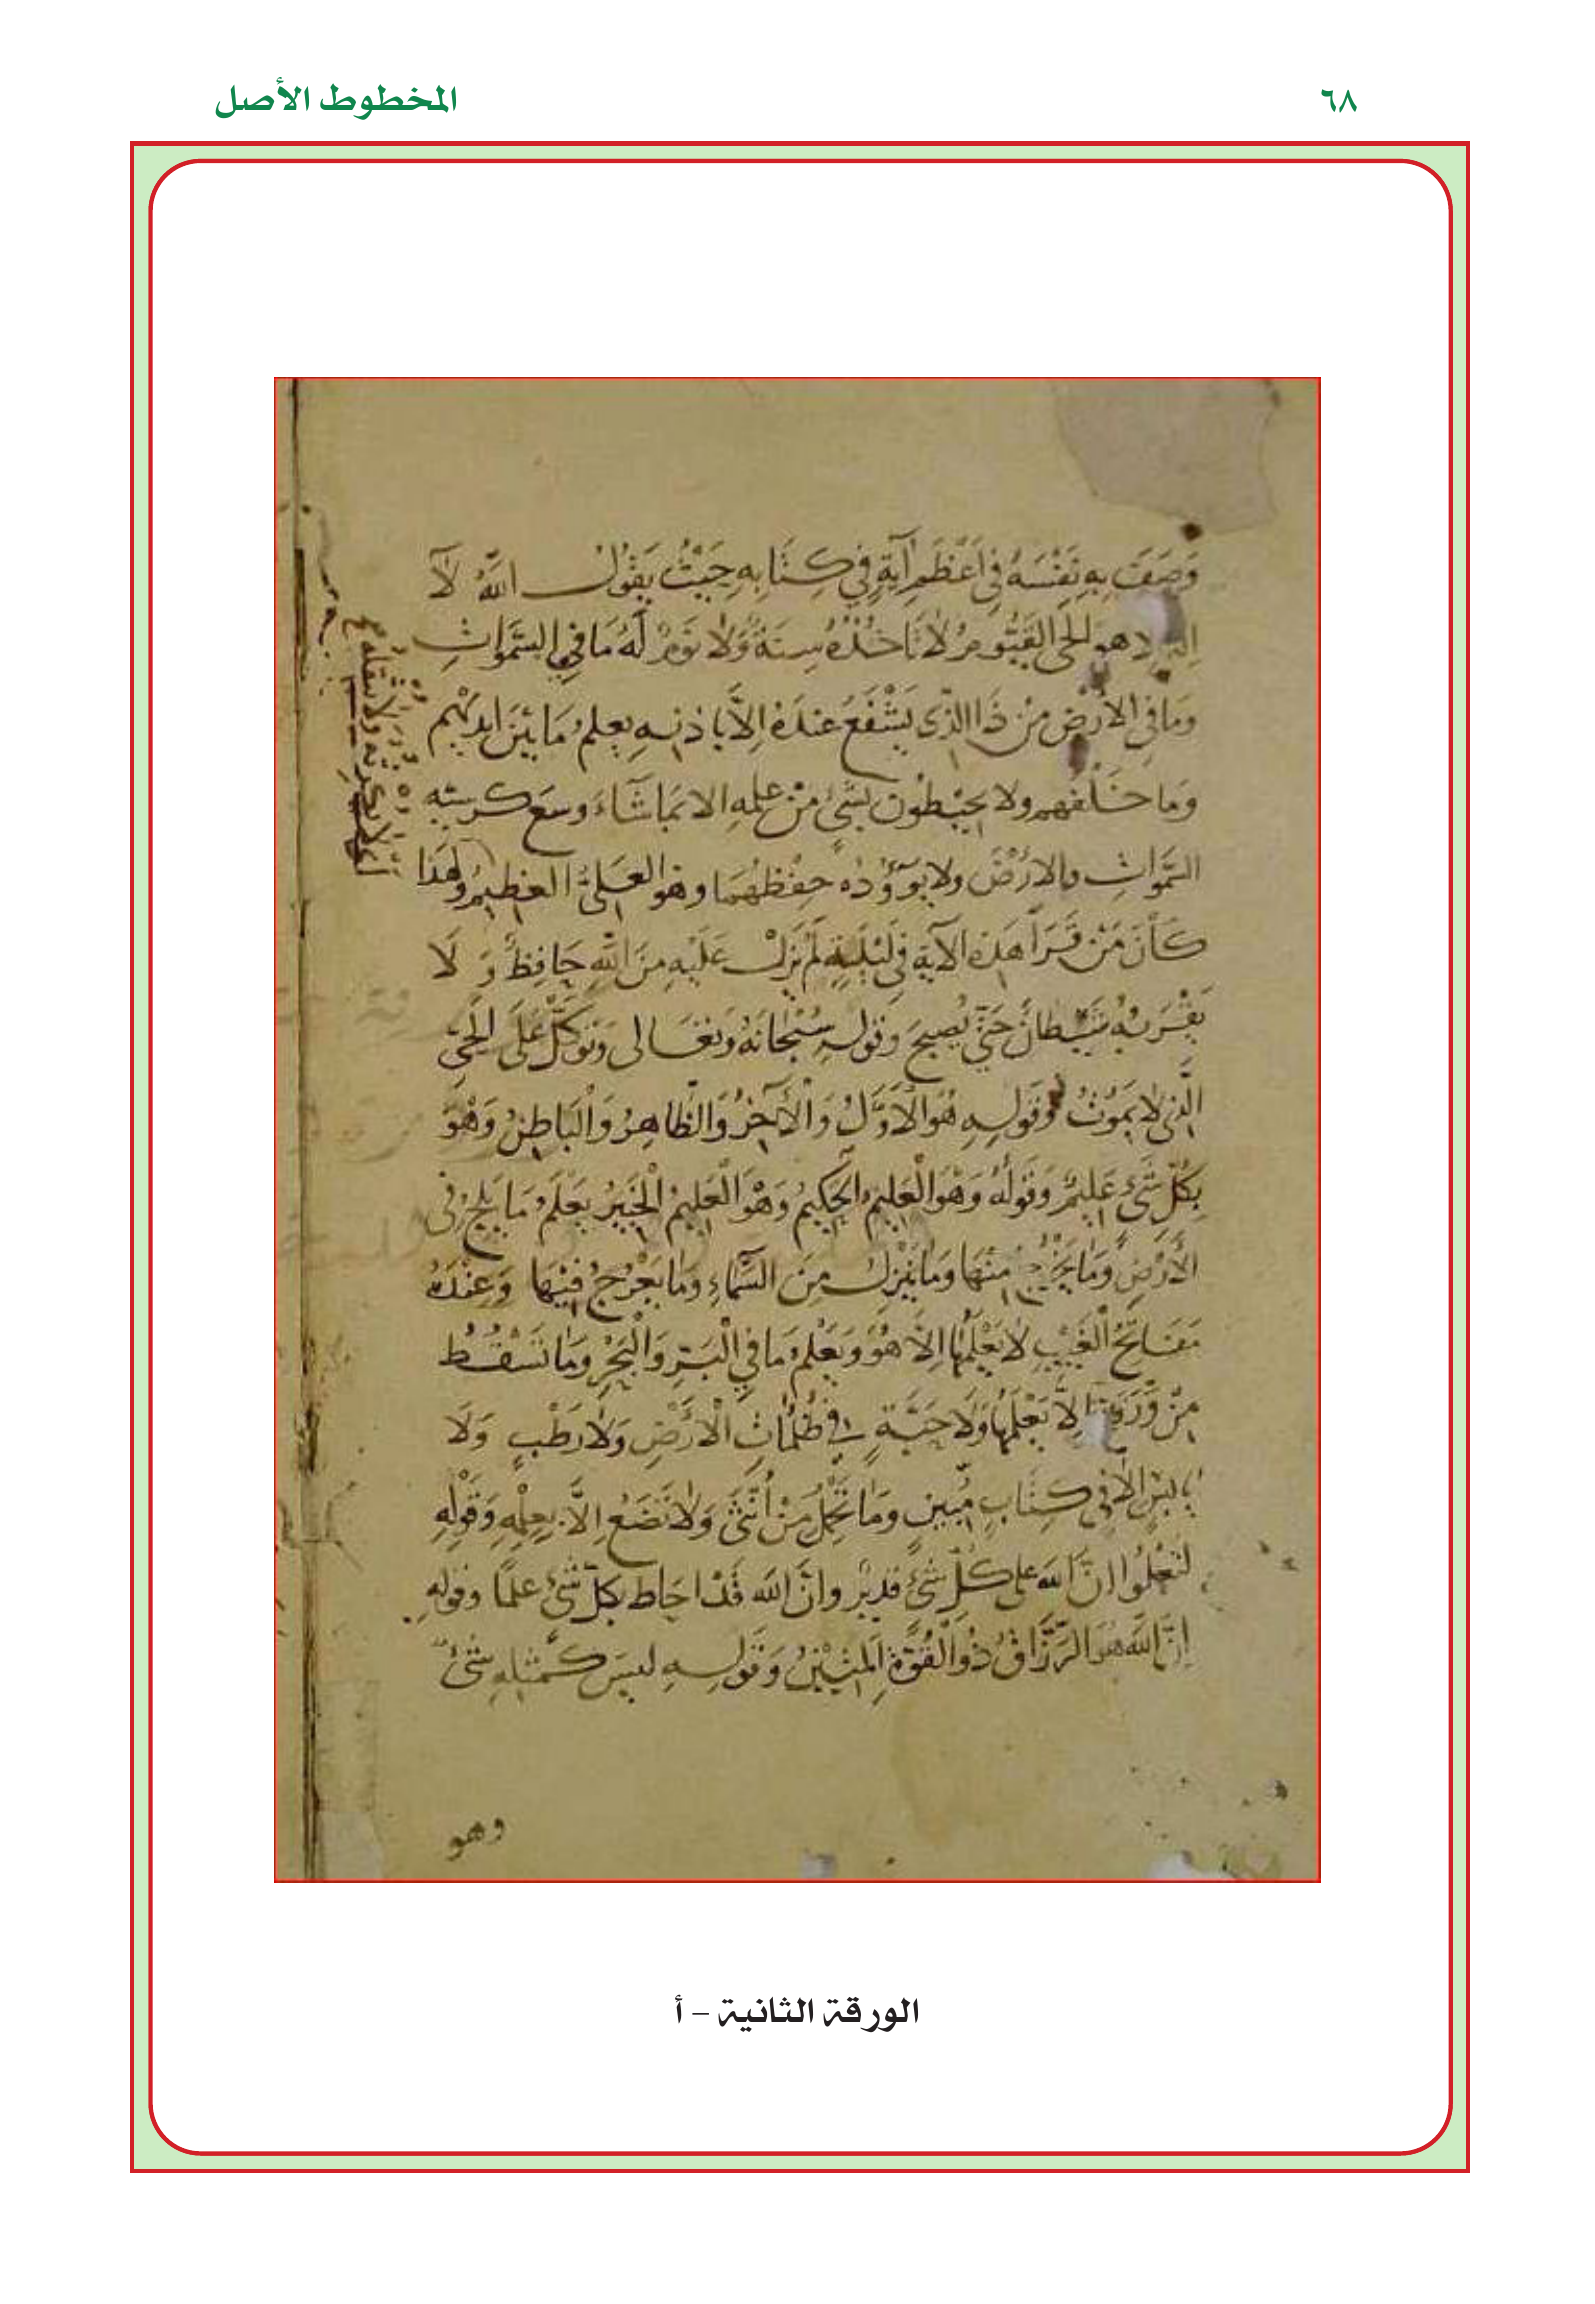 ٦٨
المخطوط الأصل
وَصَفَ بِهِ نَفْسَهُ فِي أَعْظَمِ آيَةٍ فِي كِتَابِهِ حَيْثُ يَقُولُ اللَّهُ لَا
إله إلا هو الحي القَيُّومُ لَا تَأْخُذُهُ سِنَةٌ وَلَا نَوْمٌ لَهُ مَا فِي السَّمَوَاتِ
وَمَا فِي الْأَرْضِ مَنْ ذَا الَّذِي يَشْفَعُ عِنْدَهُ إِلَّا بِإِذْنِهِ يَعْلَمُ مَا بَيْنَ أَيْدِيهِمْ
وَمَا خَلْفَهُم ولا يُحِيطُونَ بِشَيْءٍ مِنْ عِلْمِهِ إلا بِمَا شَاءَ وسع كرسيه
السَّمَوَاتِ والأَرْضَ ولا يَؤُودُهُ حِفْظُهُمَا وهُو العَلِيُّ العَظِيمُ ولِهَذَا
كَانَ مَنْ قَرَأَ هَذِهِ الآيَةِ فِي لَيْلَةٍ لَمْ يَزَلْ عَلَيْهِ مِنَ اللَّهِ حَافِظٌ وَ لَا
يَقْرَبُهُ شَيْطَانٌ حَتَّى يُصْبِحَ وَقَولِهِ سُبْحَانَهُ وَتَعَالى وَتَوَكَّلْ عَلَى الحَيِّ
الَّذِي لَا يَمُوتُ وَقَولِهِ هُوَ الْأَوَّلُ وَالْآخِرُ وَالظَّاهِرُ وَالْبَاطِنُ وَهُوَ
بِكُلِّ شَيْءٍ عَلِيمٌ وَقَوْلُهُ وَهُوَ الْعَلِيمُ الحَكِيمُ وَهُوَ الْعَلِيمُ الْخَبِيرُ يَعْلَمُ مَا يَلِجُ فِي
الْأَرْضِ وَمَا يَخْرُجُ مِنْهَا وَمَا يَنْزِلُ مِنَ السَّمَاءِ وَمَا يَعْرُجُ فِيْهَا وَعِنْدَهُ
مَفَاتِحُ الْغَيْبِ لَا يَعْلَمُهَا إِلَّا هُوَ وَيَعْلَمُ مَا فِي الْبَرِّ وَالْبَحْرِ وَمَا تَسْقُطُ
مِنْ وَرَقَةٍ إِلَّا يَعْلَمُهَا وَلَا حَبَّةٍ فِي ظُلُمَاتِ الْأَرْضِ وَلَا رَطْبٍ وَلَا
يَابِسٍ إِلَّا فِي كِتَابٍ مُبِينٍ وَمَا تَحْمِلُ مِنْ أُنْثَى وَلَا تَضَعُ إِلَّا بِعِلْمِهِ وَقَوْلِهِ
لِتَعْلَمُوا أنَّ اللَّهَ عَلَى كُلِّ شَيْءٍ قدِيرٌ وأنَّ اللَّهَ قَدْ أَحَاط بِكُلِّ شَيْءٍ عِلمًا وقولِهِ
إِنَّ اللَّهَ هُوَ الرَّزَّاقُ ذُو الْقُوَّةِ الْمَتِيْنُ وَقَولِهِ ليسَ كَمِثْلِهِ شَيْءٌ
وهو
الورقة الثانية – أ